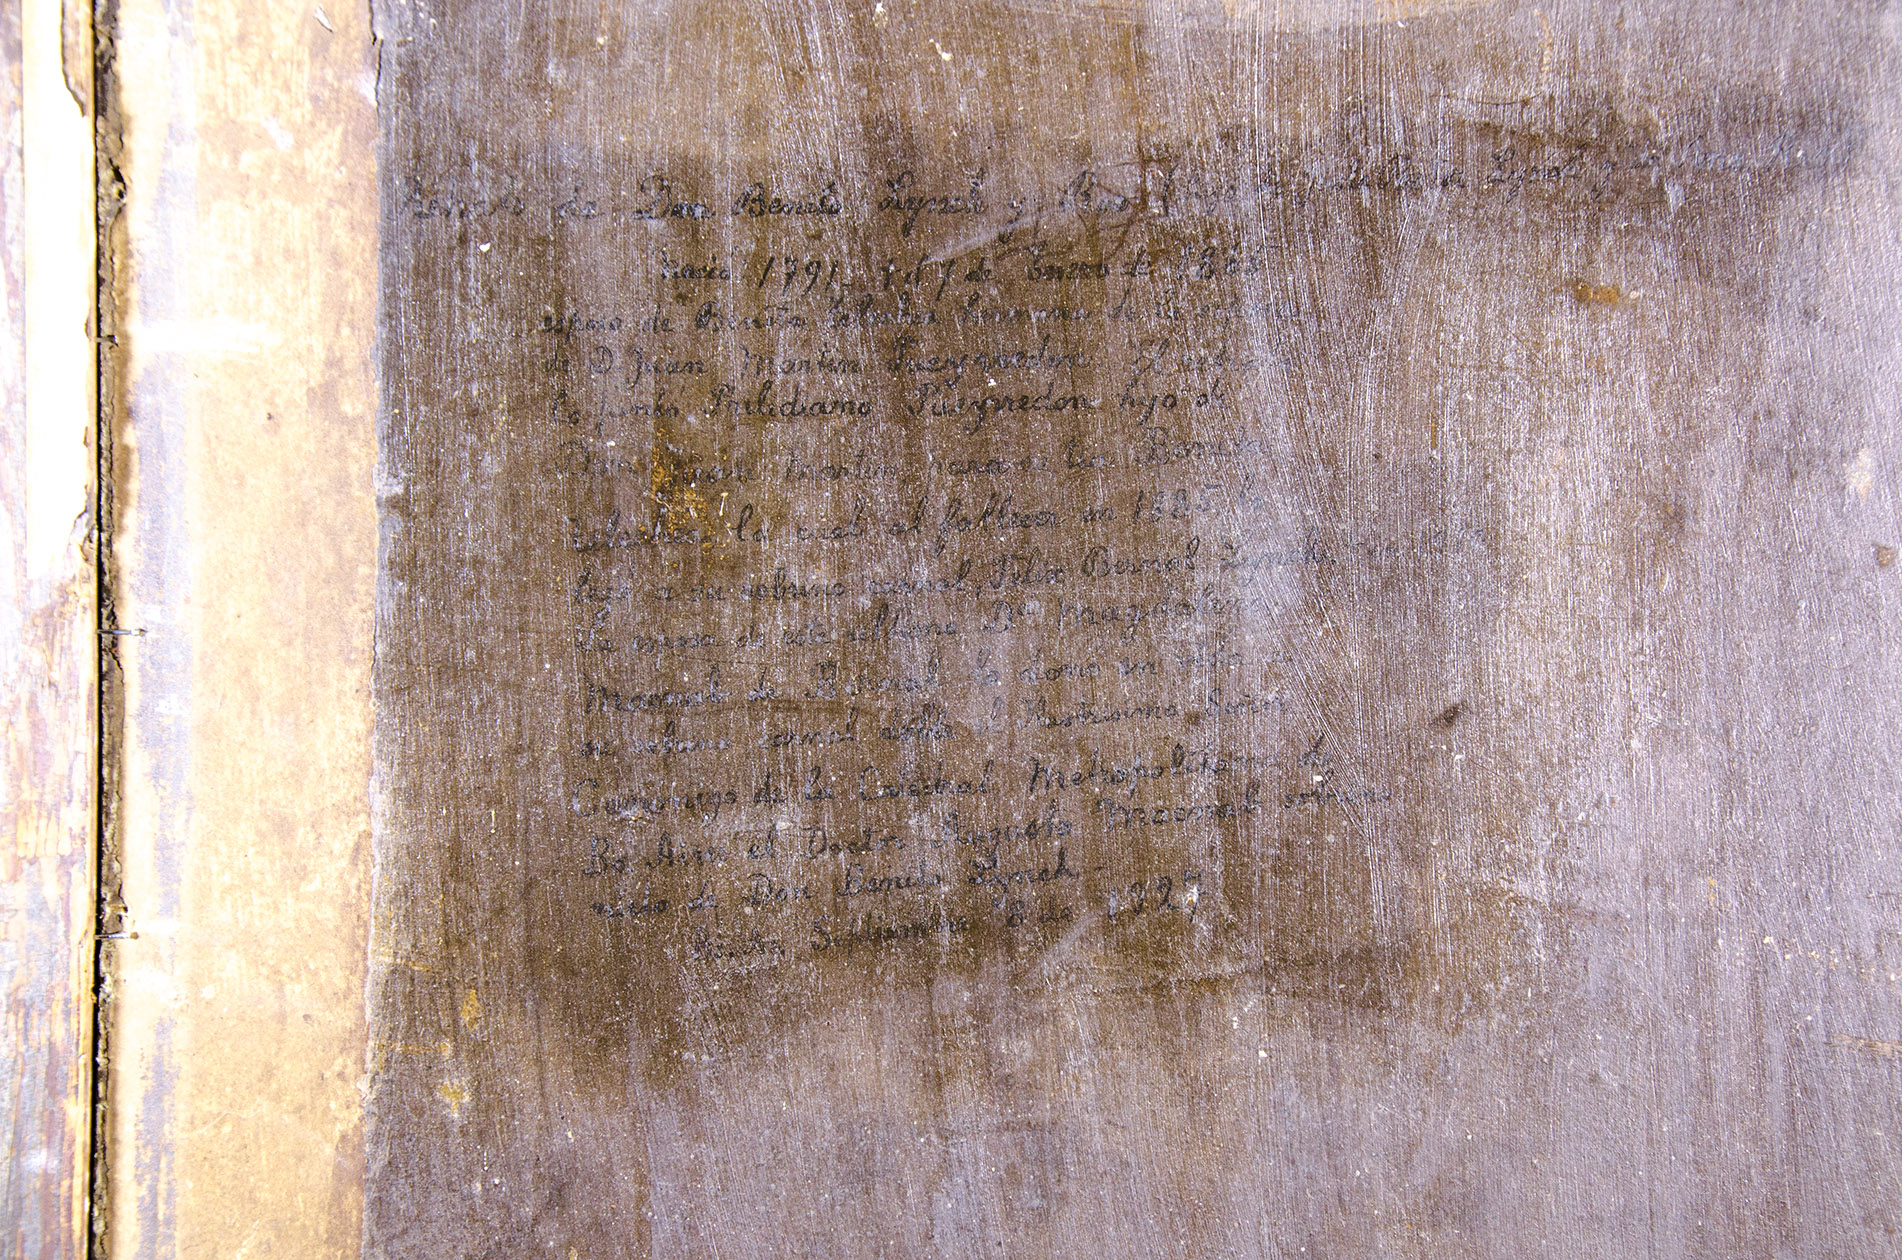 Retrato de Don Benito Lynch y Roo (hijo de Lynch y
Nació 1791 - † el 7 de Enero de
esposo de Benita Telechea hermana de la esposa
de D. Juan Martin Pueyrredon El retrato
lo pintó Prilidiano Pueyrredon hijo de
Don Juan Martin para su tia Benita
Telechea, la cual al fallecer en 1885 lo
legó a su sobrino carnal, Felix Bernal Lynch,
La esposa de este ultimo Dª Magdalena
Marenal de Bernal lo donó en vida a
su sobrino carnal el Ilustrisimo Señor
Canonigo de la Catedral Metropolitana de
Bs Aires el Doctor Augusto Marenal sobrino
nieto de Don Benito Lynch -
Setiembre 8 de 1927